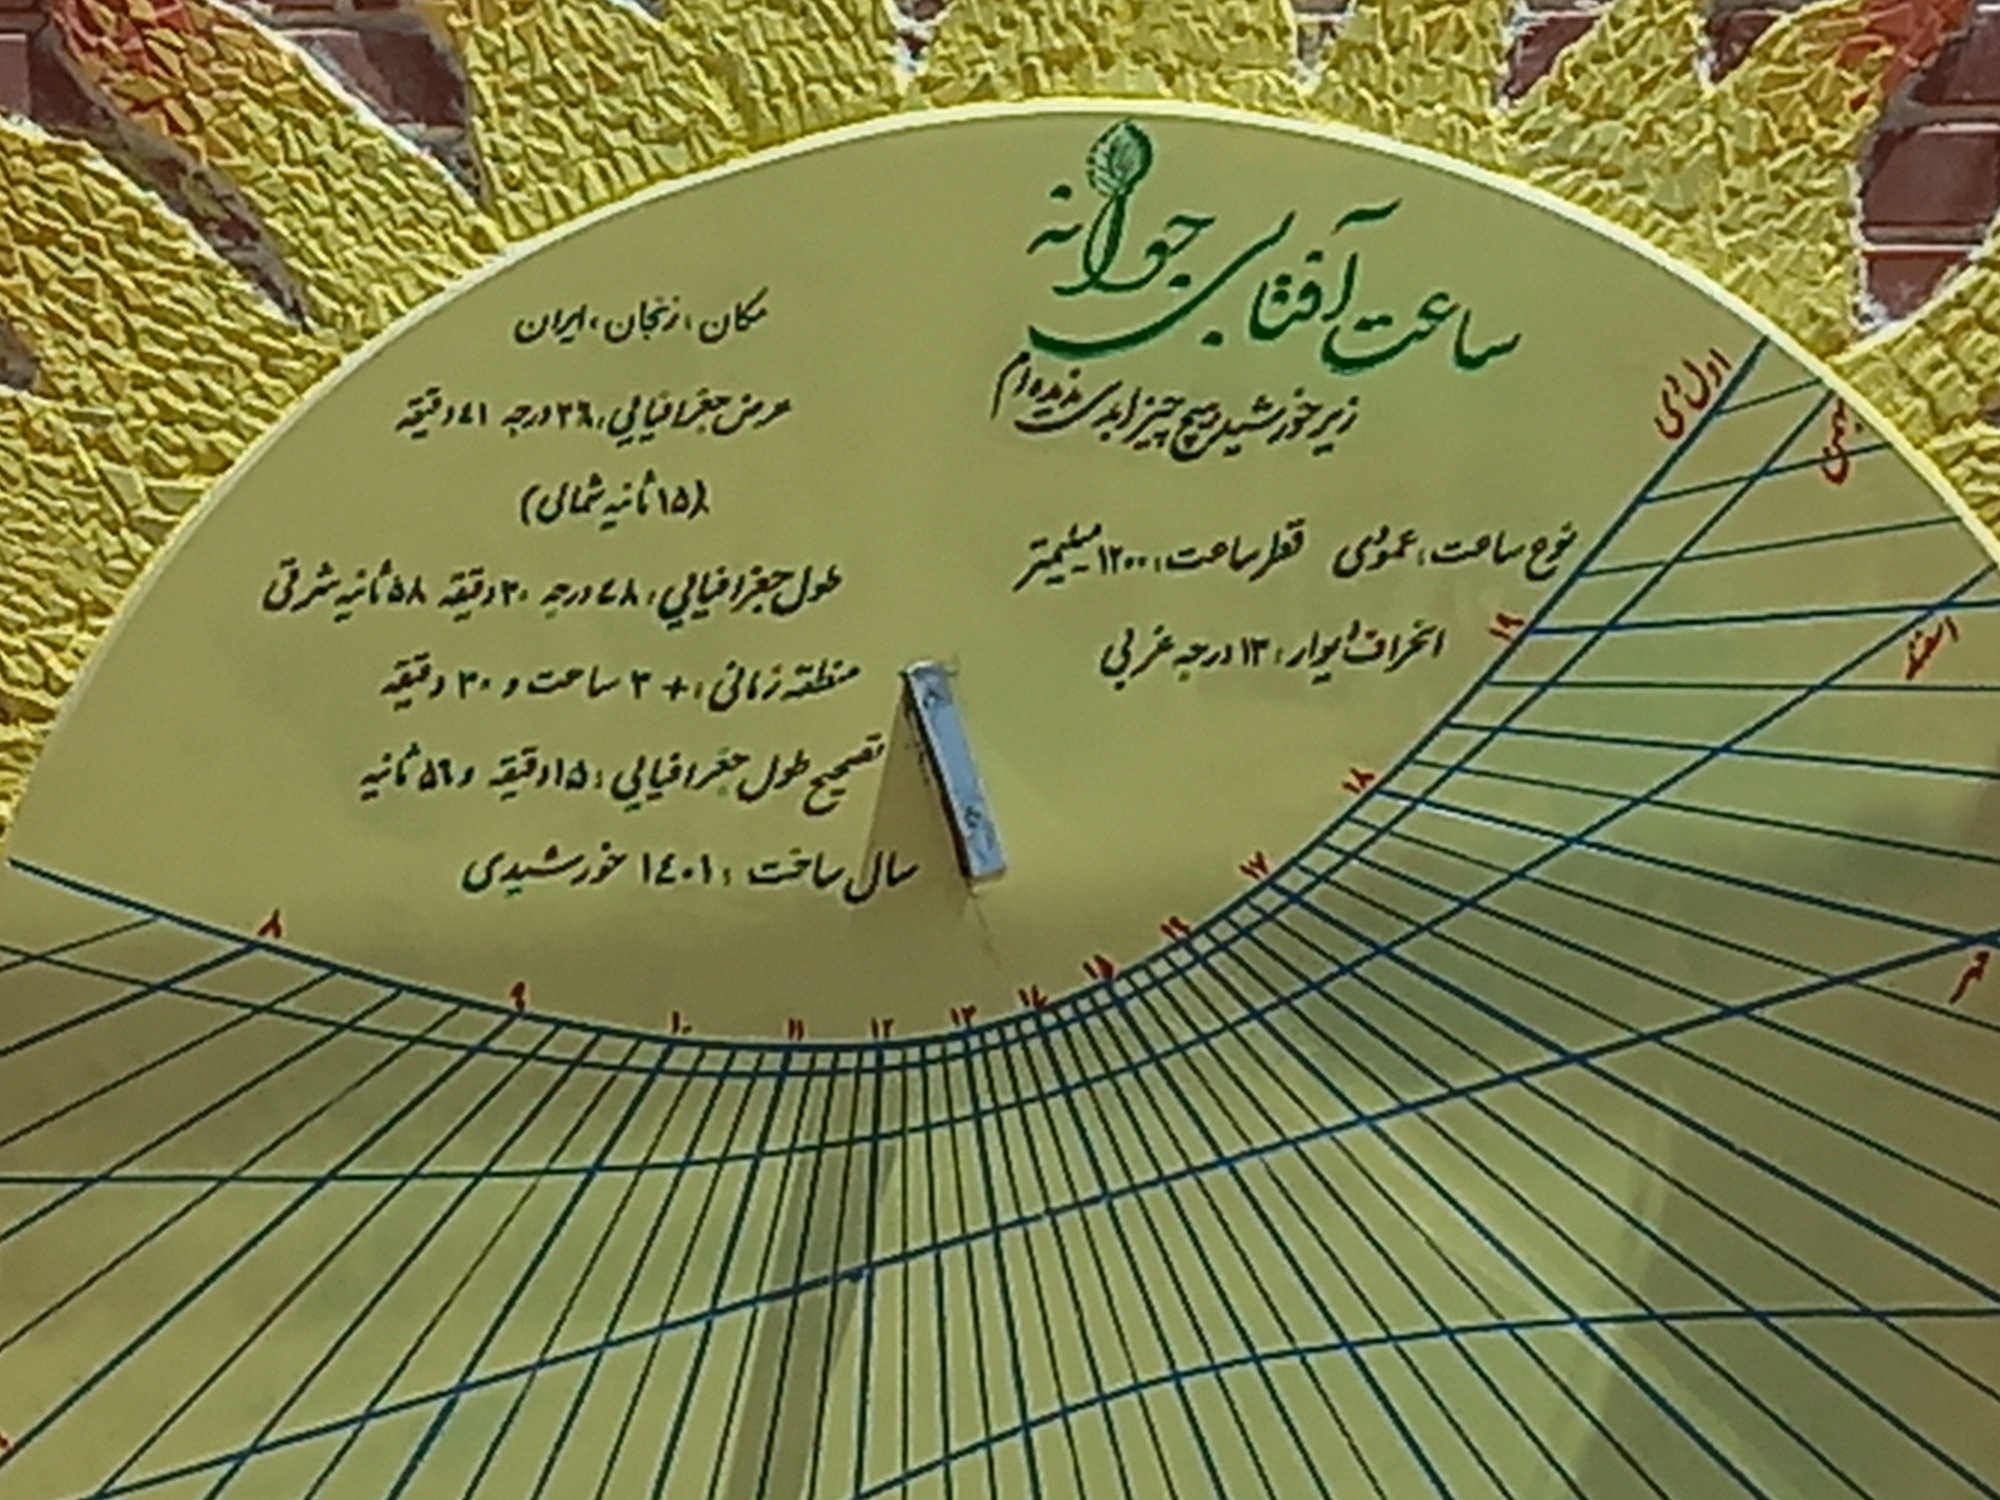 ساعت آفتابی جوانه
زیر خورشید هیچ چیز ابدی ندیده‌ام
نوع ساعت: عمودی قطر ساعت: ۱۲۰۰ میلیمتر
انحراف دیوار: ۱۳ درجه غربی
مکان: زنجان، ایران
عرض جغرافیایی: ۳۶ درجه ۴۱ دقیقه
(۱۵ ثانیه شمالی)
طول جغرافیایی: ۴۸ درجه ۳۰ دقیقه ۵۸ ثانیه شرقی
منطقه زمانی: +۳ ساعت و ۳۰ دقیقه
تصحیح طول جغرافیایی: ۱۵ دقیقه و ۵۶ ثانیه
سال ساخت: ۱۴۰۱ خورشیدی
اول دی
بهمن
اسفند
مهر
۸
۹
۱۰
۱۱
۱۲
۱۳
۱۴
۱۵
۱۶
۱۷
۱۸
۱۹